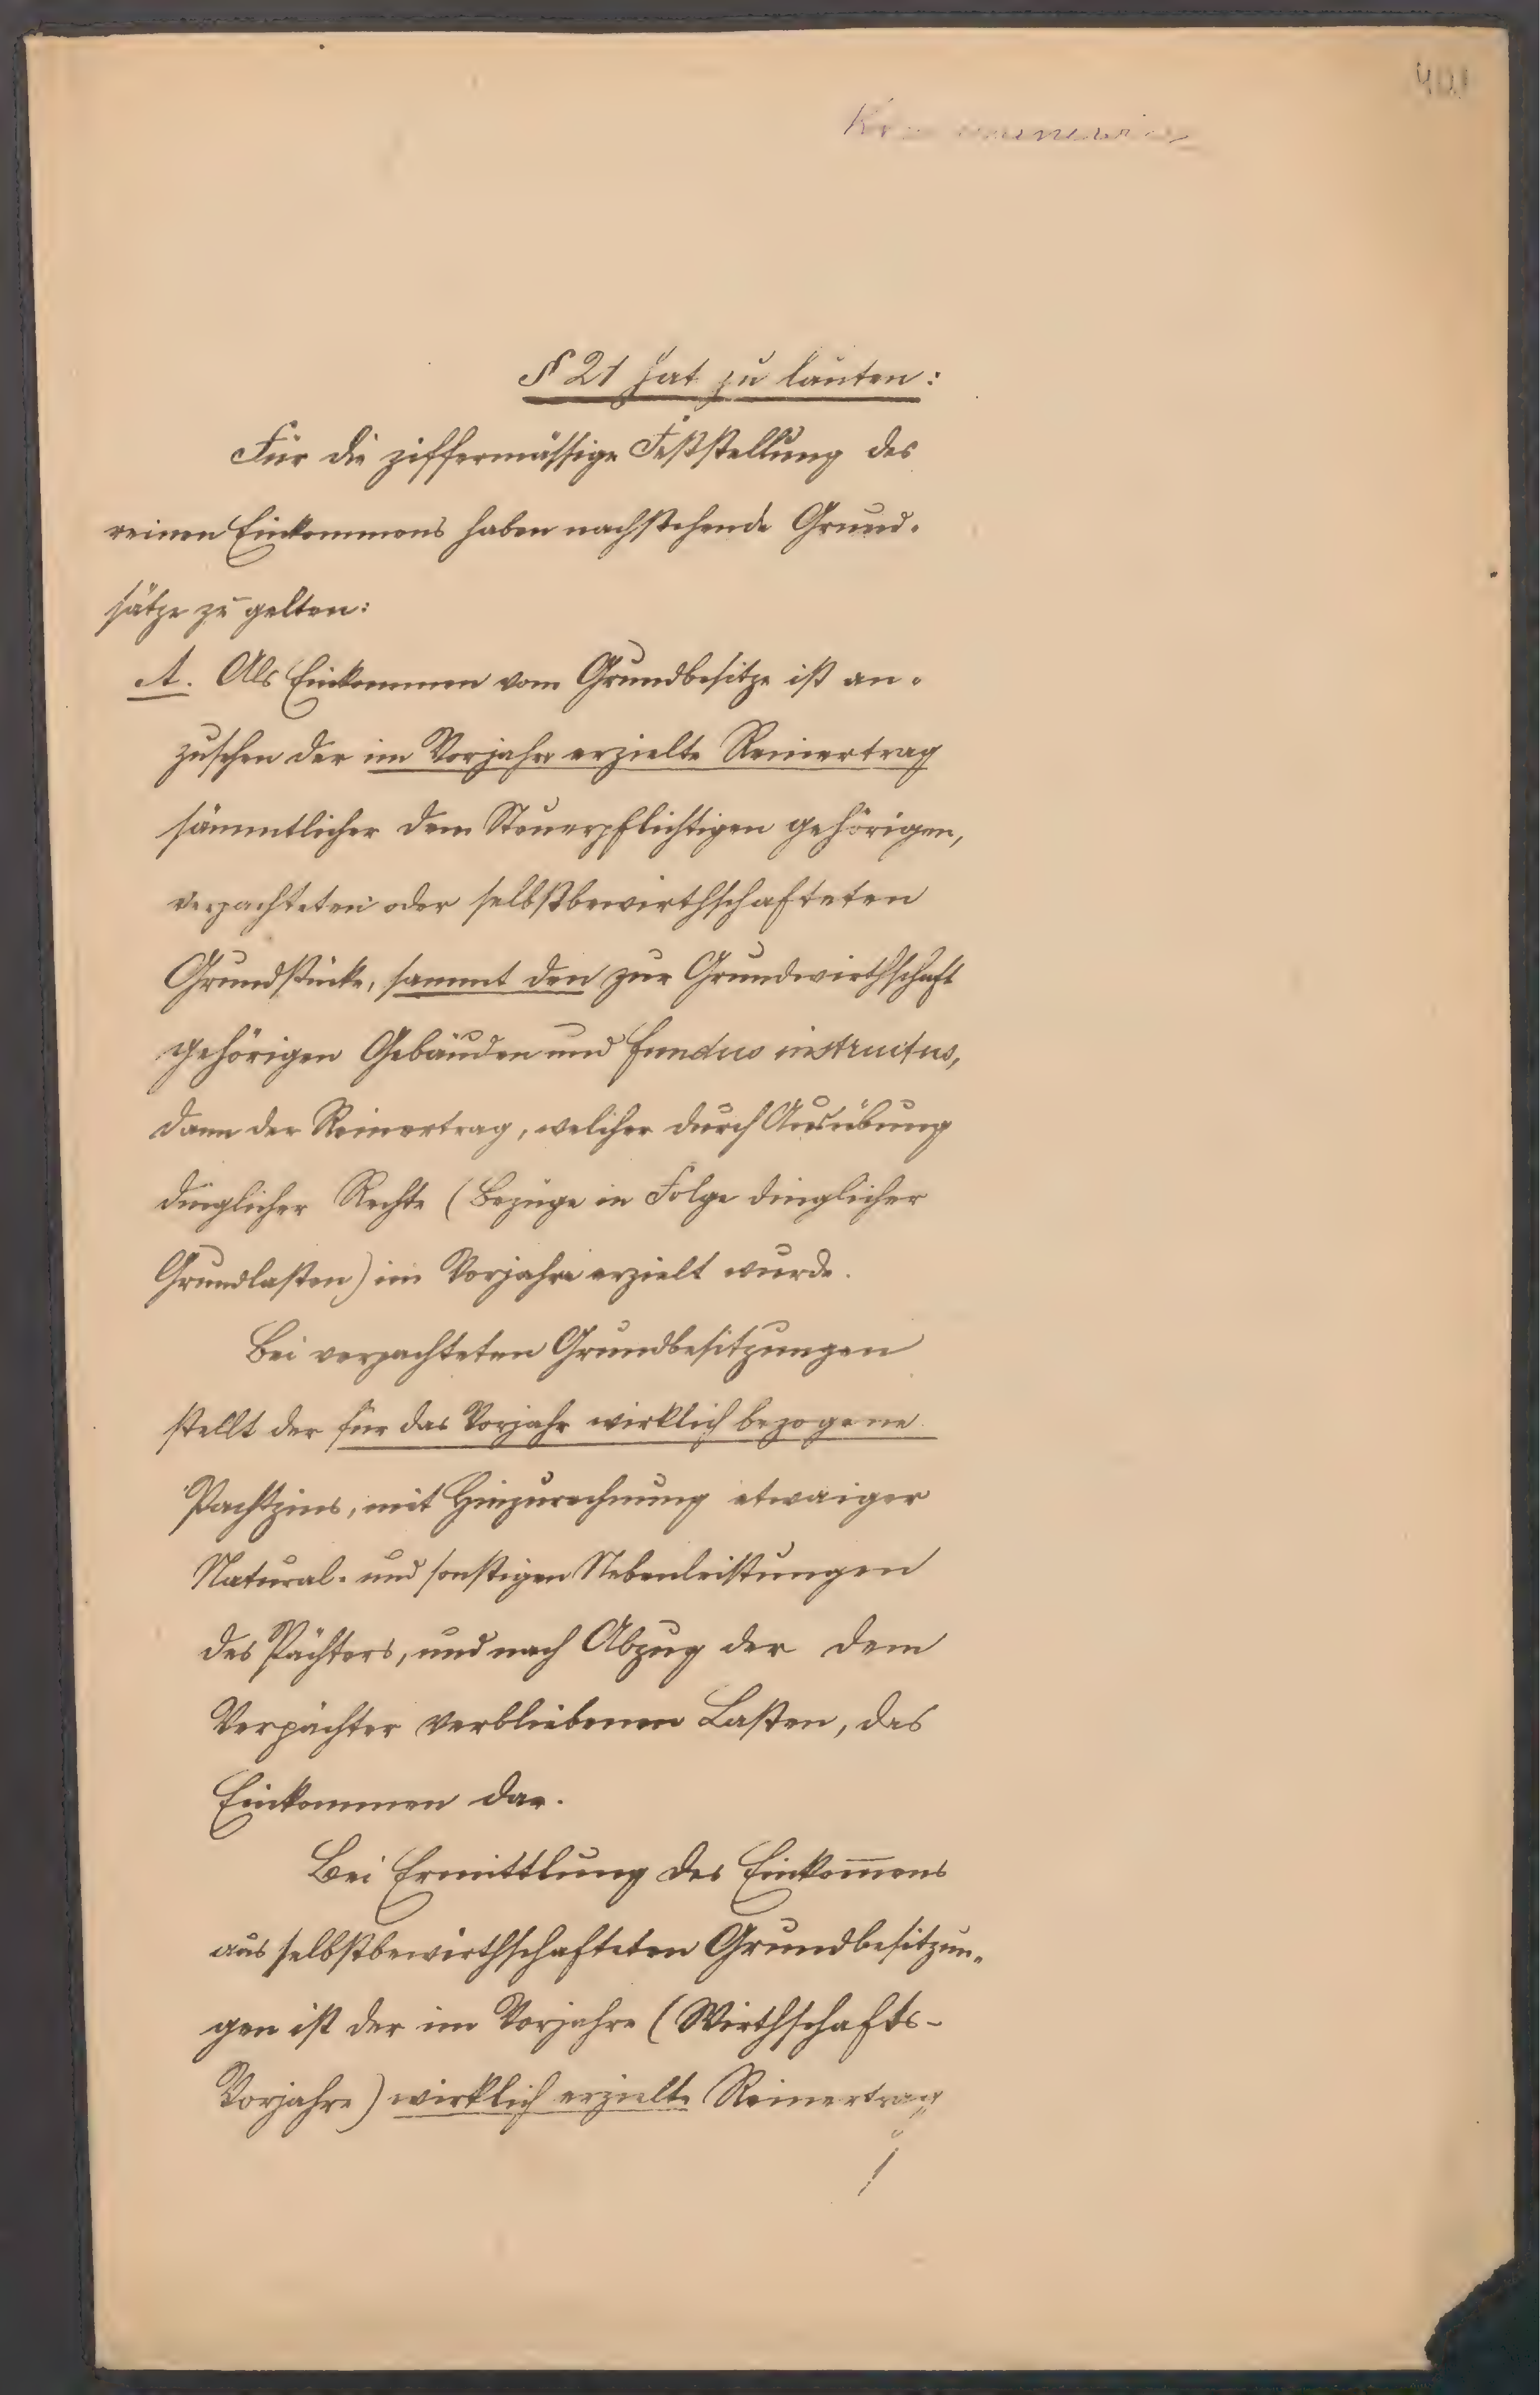 § 21 hat zu lauten:
Für die ziffermässige Feststellung des
reinen Einkommens haben nachstehende Grund-
sätze zu gelten:
A. Als Einkommen vom Grundbesitze ist an-
zusehen der im Vorjahre erzielte Reinertrag
sämmtlicher dem Steuerpflichtigen gehörigen,
verpachteten oder selbstbewirthschafteten
Grundstücke, sammt den zur Grundwirthschaft
gehörigen Gebäuden und fundus instructus,
dann der Reinertrag, welcher durch Ausübung
dinglicher Rechte (Bezüge in Folge dinglicher
Grundlasten) im Vorjahre erzielt wurde.
Bei verpachteten Grundbesitzungen
stellt der für das Vorjahr wirklich bezogene
Pachtzins, mit Hinzurechnung etwaiger
Natural- und sonstigen Nebenleistungen
des Pächters, und nach Abzug der dem
Verpächter verbliebenen Lasten, das
Einkommen dar.
Bei Ermittlung des Einkom̅ens
aus selbstbewirthschafteten Grundbesitzun-
gen ist der im Vorjahre (Wirthschafts-
Vorjahre) wirklich erzielte Reinertrag